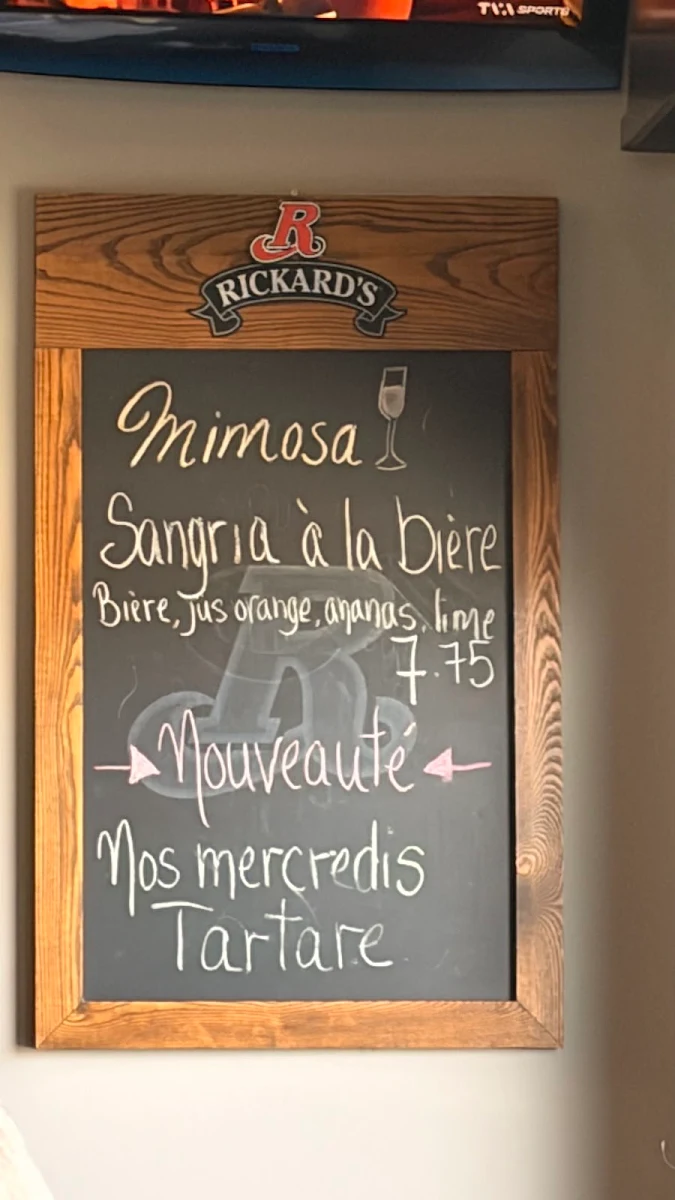 TVA SPORTS
R
RICKARD'S
Mimosa
Sangria à la bière
Bière, jus orange, ananas, lime
7.75
Nouveauté
Nos mercredis
Tartare